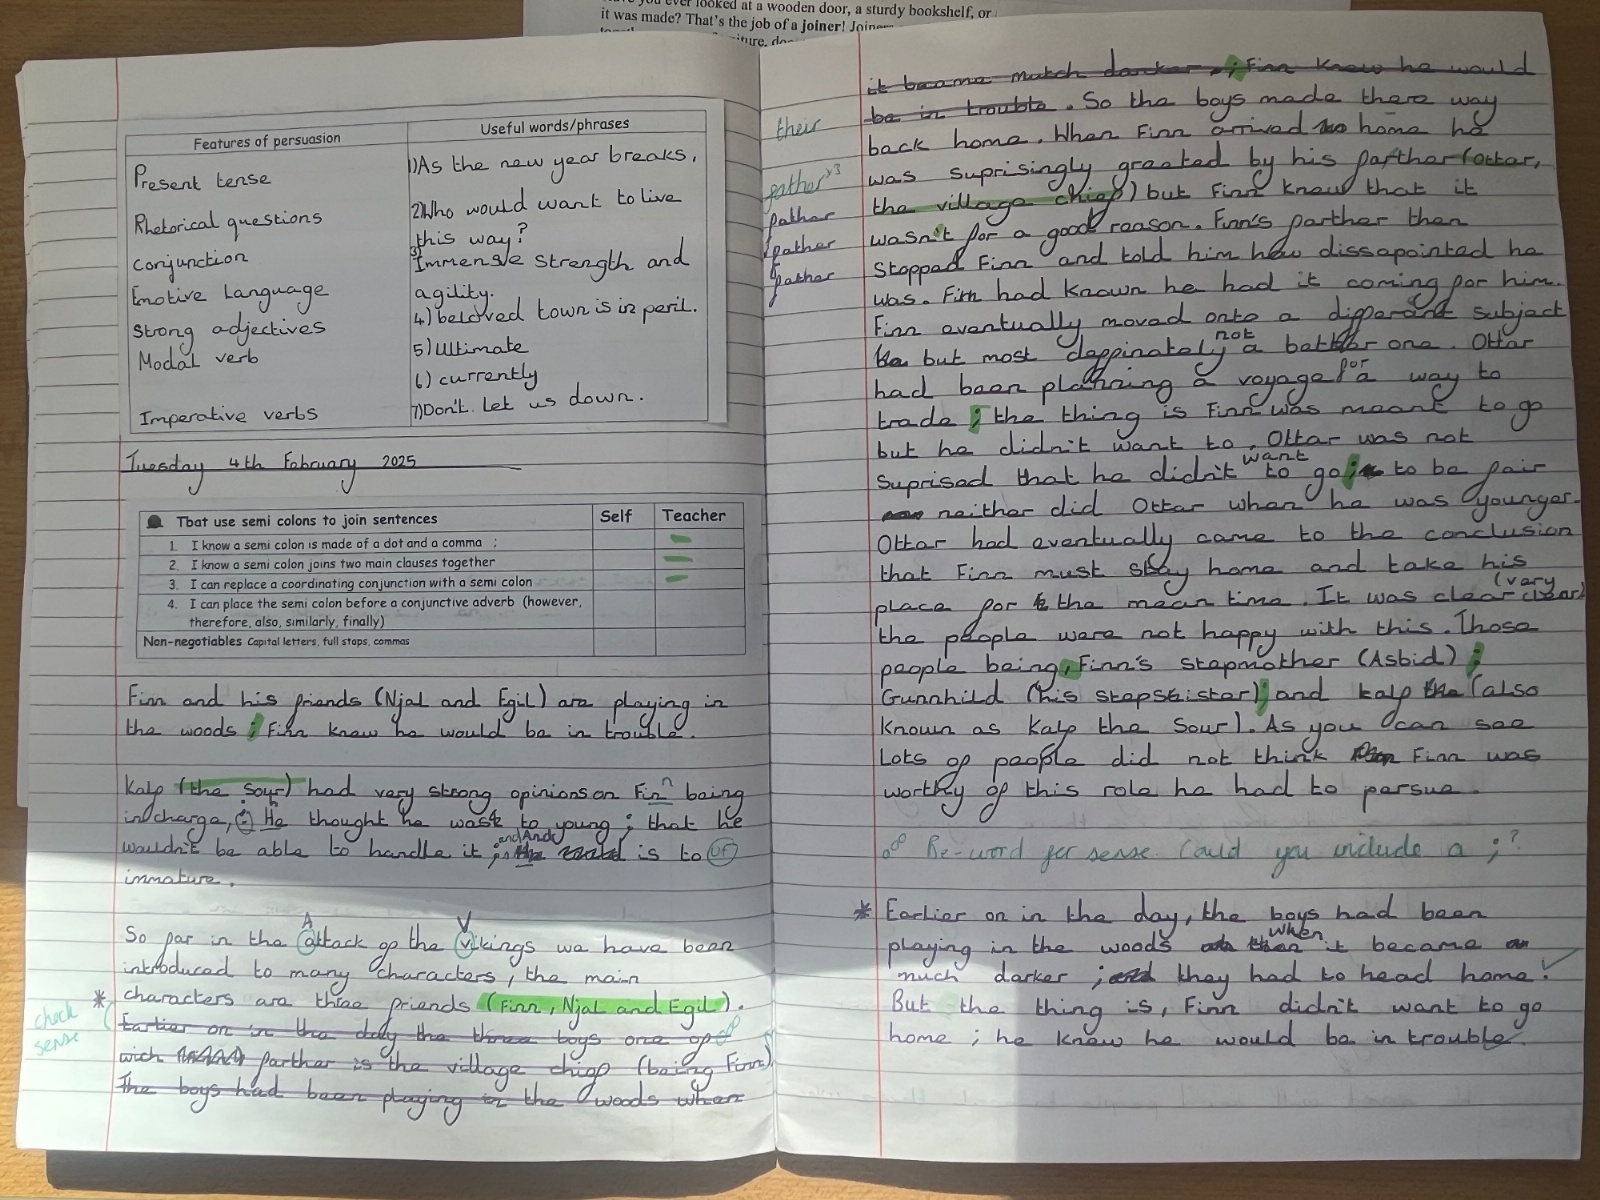 have you ever looked at a wooden door, a sturdy bookshelf, or
it was made? That's the job of a joiner! Joiners
Features of persuasion
Useful words/phrases
Present tense
Rhetorical questions
Conjunction
Emotive Language
Strong adjectives
Modal verb
Imperative verbs
1)As the new year breaks,
2)Who would want to live
this way?
3)Immensve strength and
agility.
4) beloved town is in peril.
5) Ultimate
6) currently
7)Don't let us down.
Tuesday 4th February 2025
Tbat use semi colons to join sentences Self Teacher
1. I know a semi colon is made of a dot and a comma ;
2. I know a semi colon joins two main clauses together
3. I can replace a coordinating conjunction with a semi colon
4. I can place the semi colon before a conjunctive adverb (however,
therefore, also, similarly, finally)
Non-negotiables Capital letters, full stops, commas
Finn and his friends (Njal and Egil) are playing in
the woods ; Finn knew he would be in trouble.
Kalf (the sour) had very strong opinions on Finn being
in charge, He thought he was to young ; that he
wouldn't be able to handle it ; and is to
immature.
So far in the Attack of the Vikings we have been
introduced to many characters, the main
* characters are three friends (Finn, Njal and Egil).
check
sense
Earlier on in the day the three boys one of
wich farther is the village chief (being Finn)
The boys had been playing in the woods when
it became mutch darker ; Finn knew he would
be in trouble. So the boys made there way
their
back home. When Finn arrived home he
was suprisingly greeted by his farther (Ottar,
father x3
father
father
father
the village chief) but Finn knew that it
wasn't for a good reason. Finn's farther then
stopped Finn and told him how dissapointed he
was. Finn had known he had it coming for him.
Finn eventually moved onto a differant subject
but most deffinately not a better one. Ottar
had been planning a voyage for a way to
trade ; the thing is Finn was meant to go
but he didn't want to. Ottar was not
suprised that he didn't want to go ; to be fair
neither did Ottar when he was younger.
Ottar had eventually came to the conclusion
that Finn must stay home and take his
place for the mean time. It was clear (very clear)
the people were not happy with this. Those
people being, Finn's stepmother (Asbid) ;
Gunnhild (his stepsister) ; and Kalf (also
known as Kalf the Sour). As you can see
Lots of people did not think Finn was
worthy of this role he had to persue.
Re-word for sense. Could you include a ; ?
* Earlier on in the day, the boys had been
playing in the woods when it became
much darker ; they had to head home.
But the thing is, Finn didn't want to go
home ; he knew he would be in trouble.